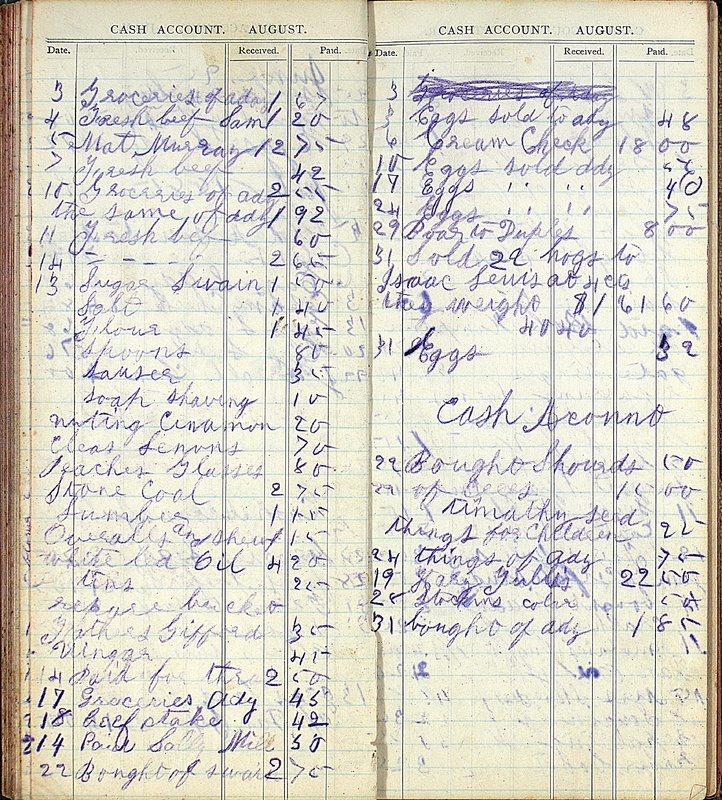 CASH ACCOUNT. AUGUST.
Date. Received. Paid.
3 Groceries of ady 1 65
4 Fresh beef Sam 1 20
5 Mat Murray 12 75
7 Fresh beef 42
10 Groceries of ady 2 55
the same of ady 1 92
11 Fresh beef 60
14 - - - - - 2 65
13 Sugar Swain 1 50
Salt 1 40
Flour 1 45
Spoons 80
Sauser 35
soap shaving 10
Cinamon 20
Lemons 70
Peaches Glasses 80
Stone Coal 2 75
Lumber 1
Overalls an shew 1 15
white led Oil 4 20
tins 25
Gifford 35
Vingar 45
14 Paid for thra 2 50
17 Groceries Ady 45
18 Beef stake 42
214 Paid Sally Mill 50
22 Bought of swai 2 75
CASH ACCOUNT. AUGUST.
Date. Received. Paid.
3 Groceries of ady
3 Eggs sold to ady 48
6 Cream Check 18 00
10 Eggs sold ady
17 Eggs " " 40
24 Eggs " " 75
29 Boar to Duples 8 00
31 Sold 29 hogs to
Isaac Lewis at 4 cts
they weight $161 60
4040
31 Eggs 32
Cash Aconno
22 Bought 50
of 00
timathy seed
things for Children 25
24 things of ady 75
19 22 50
25 Stockins color
31 bought of ady 1 85